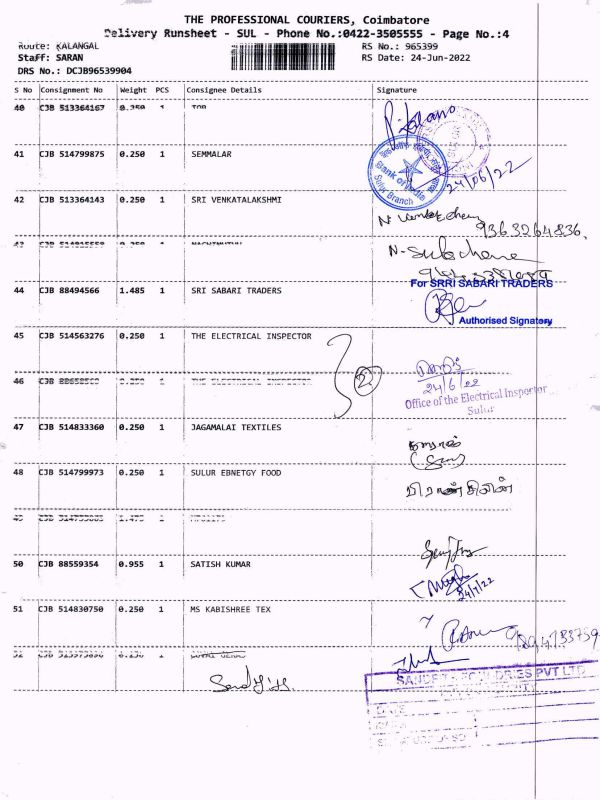 THE PROFESSIONAL COURIERS, Coimbatore
Delivery Runsheet - SUL - Phone No.:0422-3505555 - Page No.:4
Route: KALANGAL
RS No.: 965399
Staff: SARAN
RS Date: 24-Jun-2022
DRS No.: DCJB96539904
S No Consignment No Weight PCS Consignee Details Signature
40 CJB 513364167 0.250 1
41 CJB 514799875 0.250 1 SEMMALAR
Bank of India
Sulur Branch
24/06/22
42 CJB 513364143 0.250 1 SRI VENKATALAKSHMI
9363264836.
44 CJB 88494566 1.485 1 SRI SABARI TRADERS
For SRRI SABARI TRADERS
Authorised Signatory
45 CJB 514563276 0.250 1 THE ELECTRICAL INSPECTOR
46 THE ELECTRICAL INSPECTOR
2
24/6/22
Office of the Electrical Inspector
Sulur
47 CJB 514833360 0.250 1 JAGAMALAI TEXTILES
48 CJB 514799973 0.250 1 SULUR EBNETGY FOOD
49
50 CJB 88559354 0.955 1 SATISH KUMAR
51 CJB 514830750 0.250 1 MS KABISHREE TEX
52
PVT LTD
DATE